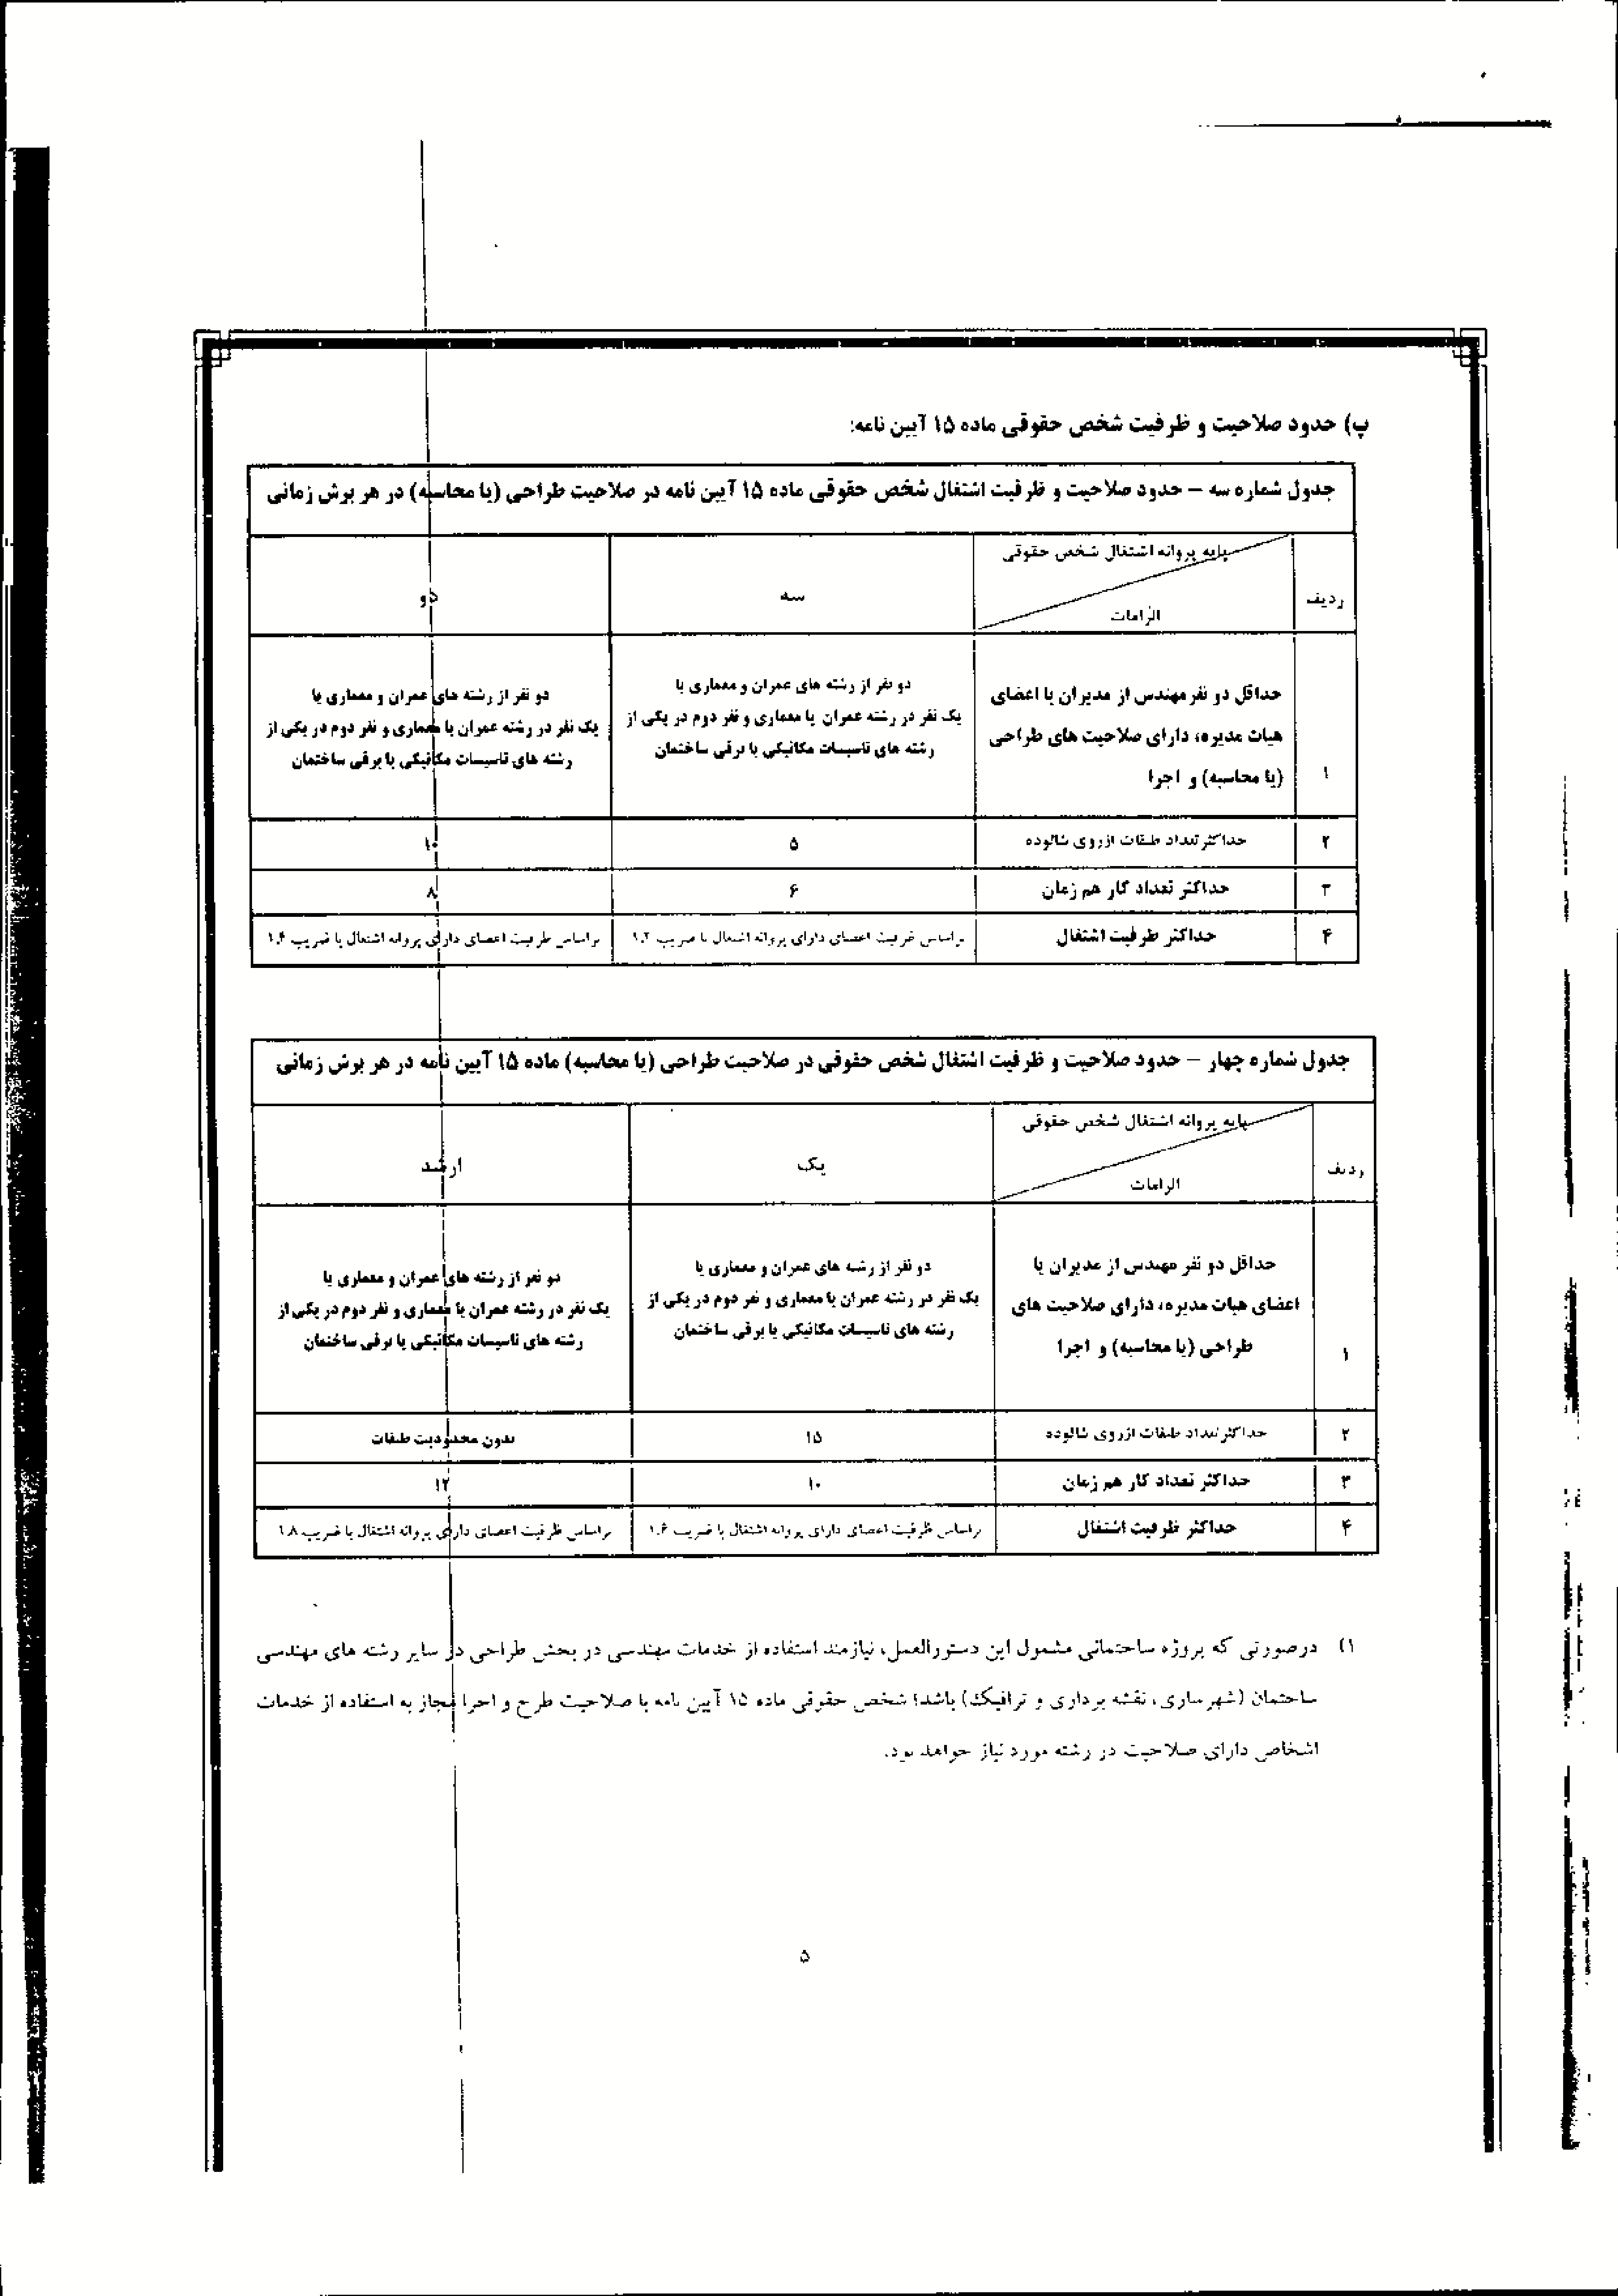 پ) حدود صلاحیت و ظرفیت شخص حقوقی ماده ۱۵ آیین نامه:
جدول شماره سه – حدود صلاحیت و ظرفیت اشتغال شخص حقوقی ماده ۱۵ آیین نامه در صلاحیت طراحی (یا محاسبه) در هر برش زمانی
ردیف
پایه پروانه اشتغال شخص حقوقی
الزامات
سه
دو
۱
حداقل دو نفر مهندس از مدیران یا اعضای
هیات مدیره، دارای صلاحیت های طراحی
(یا محاسبه) و اجرا
دو نفر از رشته های عمران و معماری یا
یک نفر در رشته عمران یا معماری و نفر دوم در یکی از
رشته های تاسیسات مکانیکی یا برقی ساختمان
دو نفر از رشته های عمران و معماری یا
یک نفر در رشته عمران یا معماری و نفر دوم در یکی از
رشته های تاسیسات مکانیکی یا برقی ساختمان
۲
حداکثر تعداد طبقات از روی شالوده
۵
۱۰
۳
حداکثر تعداد کار هم زمان
۶
۸
۴
حداکثر ظرفیت اشتغال
براساس ظرفیت اعضای دارای پروانه اشتغال با ضریب ۱.۲
براساس ظرفیت اعضای دارای پروانه اشتغال با ضریب ۱.۴
جدول شماره چهار – حدود صلاحیت و ظرفیت اشتغال شخص حقوقی در صلاحیت طراحی (یا محاسبه) ماده ۱۵ آیین نامه در هر برش زمانی
ردیف
پایه پروانه اشتغال شخص حقوقی
الزامات
یک
ارشد
۱
حداقل دو نفر مهندس از مدیران یا
اعضای هیات مدیره، دارای صلاحیت های
طراحی (یا محاسبه) و اجرا
دو نفر از رشته های عمران و معماری یا
یک نفر در رشته عمران یا معماری و نفر دوم در یکی از
رشته های تاسیسات مکانیکی یا برقی ساختمان
دو نفر از رشته های عمران و معماری یا
یک نفر در رشته عمران یا معماری و نفر دوم در یکی از
رشته های تاسیسات مکانیکی یا برقی ساختمان
۲
حداکثر تعداد طبقات از روی شالوده
۱۵
بدون محدودیت طبقات
۳
حداکثر تعداد کار هم زمان
۱۰
۱۲
۴
حداکثر ظرفیت اشتغال
براساس ظرفیت اعضای دارای پروانه اشتغال با ضریب ۱.۶
براساس ظرفیت اعضای دارای پروانه اشتغال با ضریب ۱.۸
۱) درصورتی که پروژه ساختمانی مشمول این دستورالعمل، نیازمند استفاده از خدمات مهندسی در بخش طراحی در سایر رشته های مهندسی
ساختمان (شهرسازی، نقشه برداری و ترافیک) باشد؛ شخص حقوقی ماده ۱۵ آیین نامه با صلاحیت طرح و اجرا مجاز به استفاده از خدمات
اشخاص دارای صلاحیت در رشته مورد نیاز خواهد بود.
۵